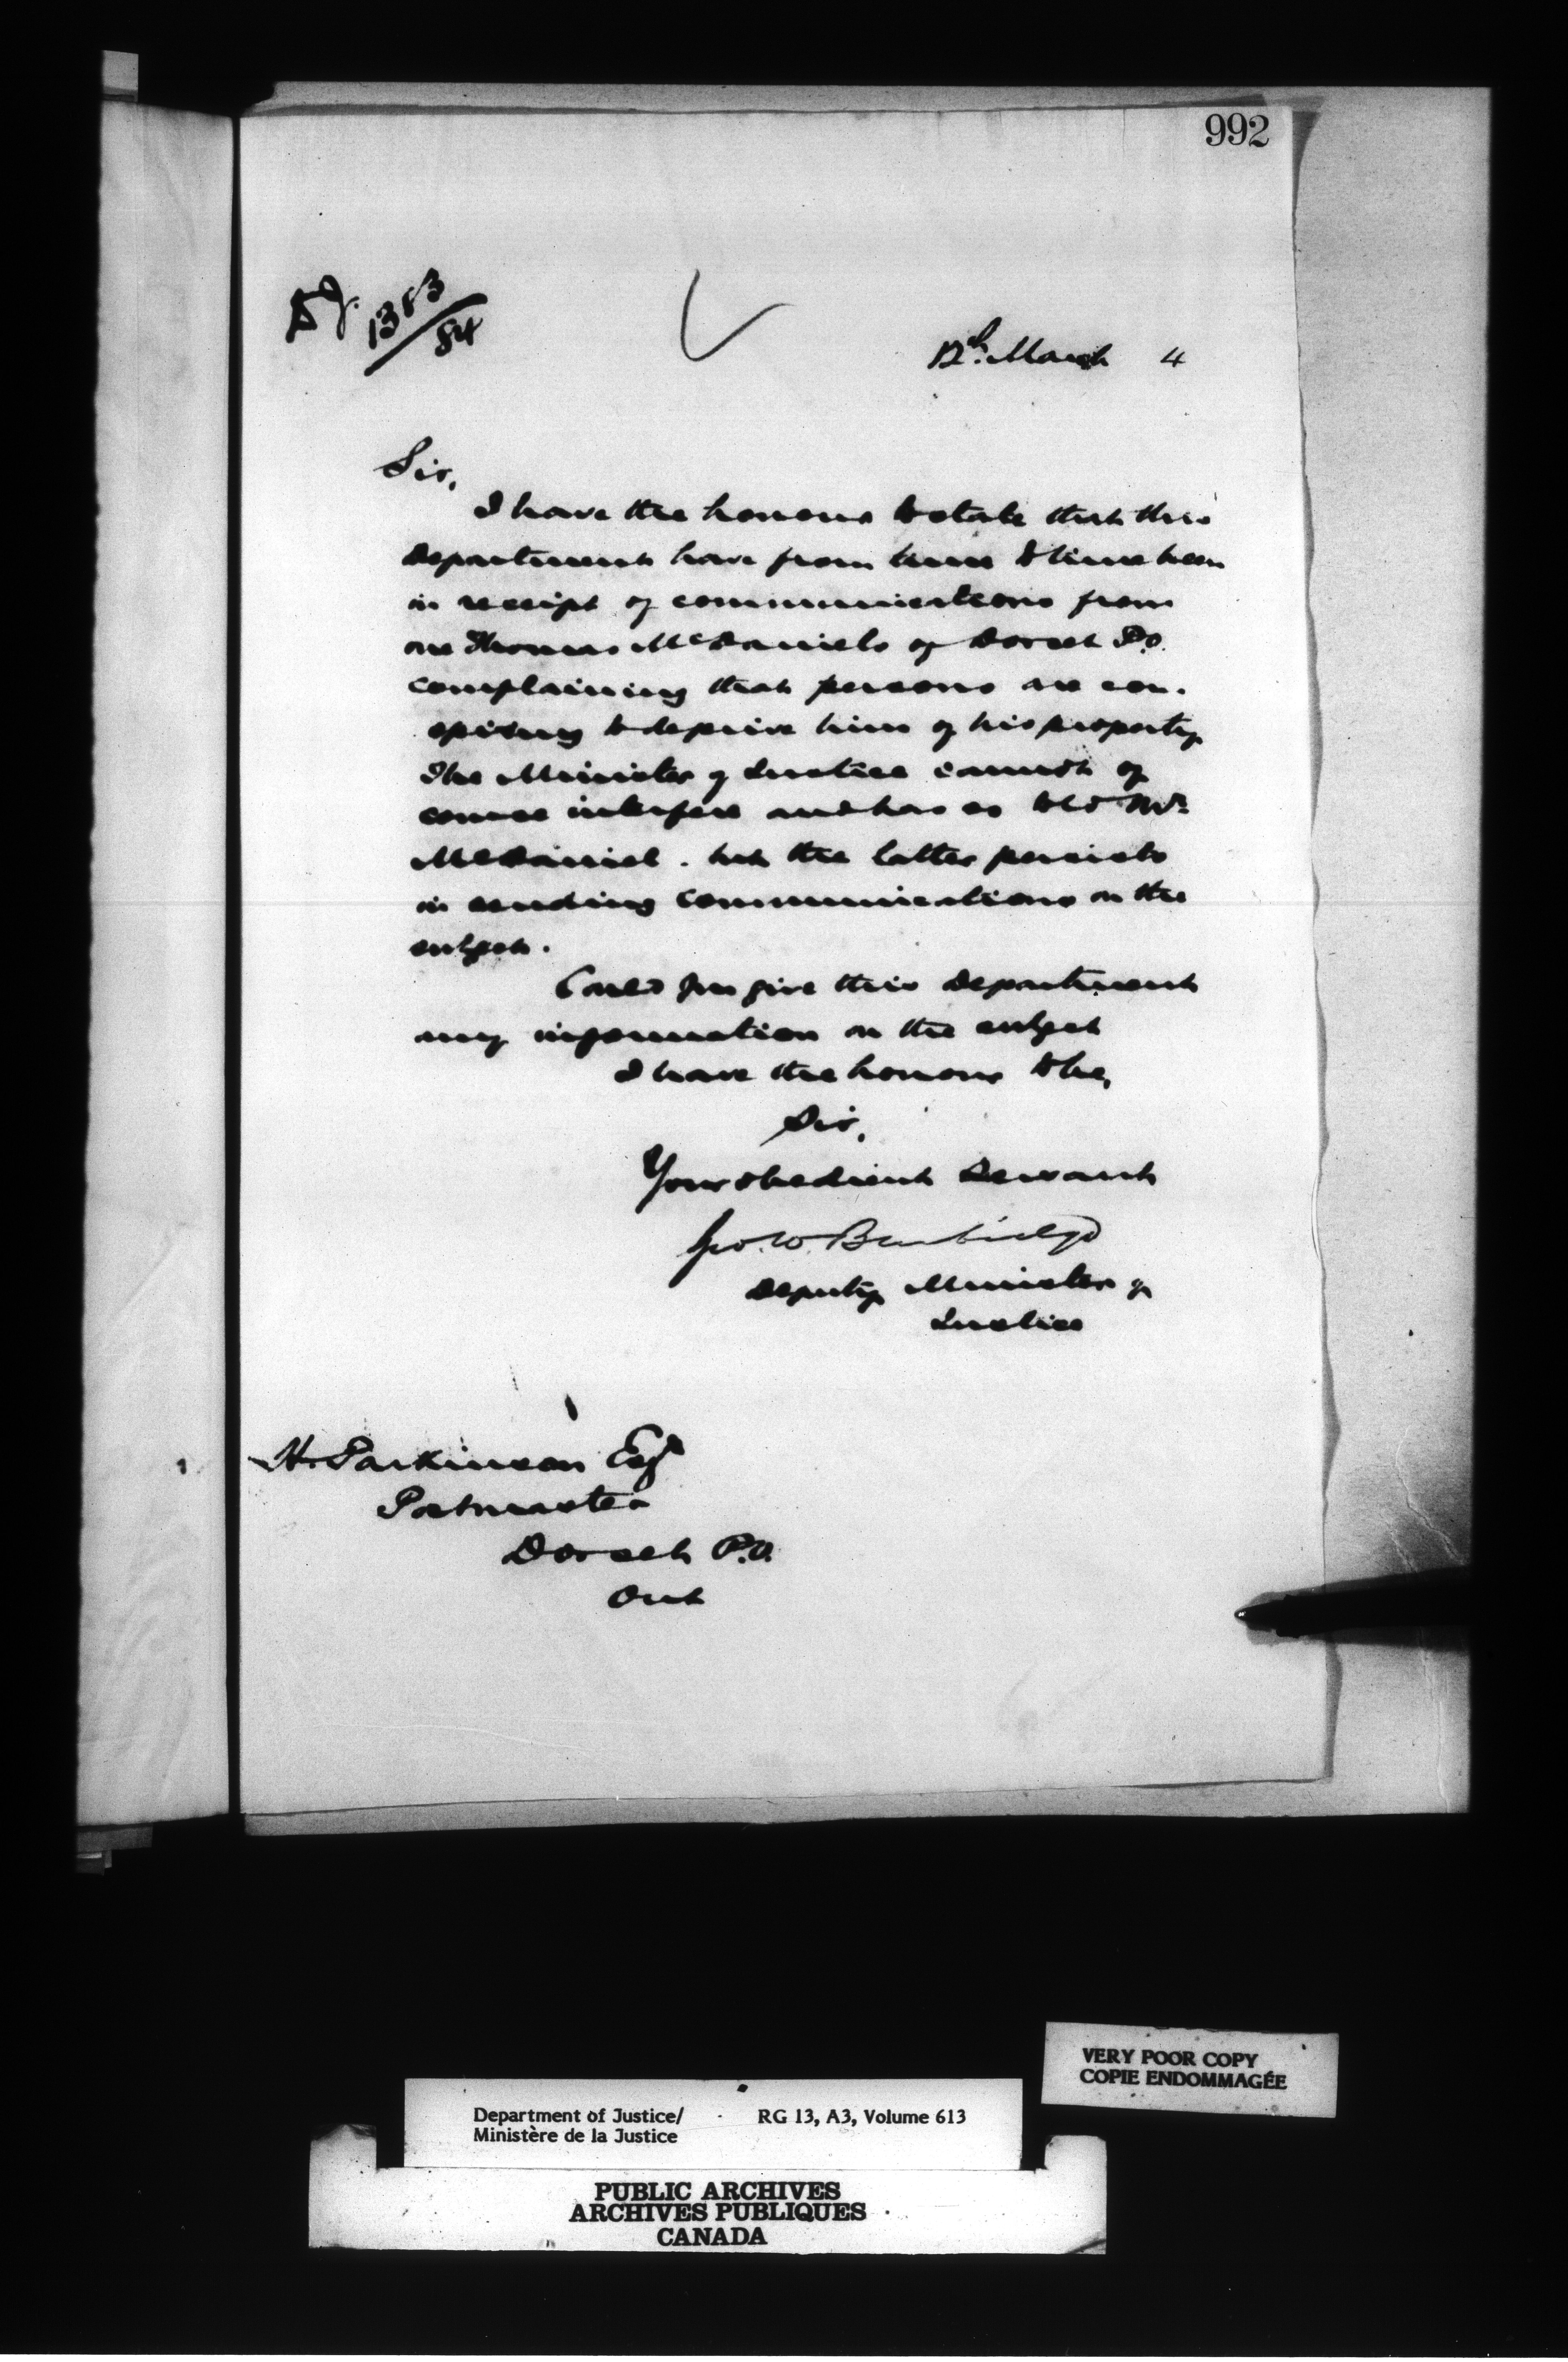 992
1383/84
12th March 4
Sir,
I have the honour to state that this
Department have from time to time been
in receipt of communications from
one Thomas McDaniels of Dorset P.O.
complaining that persons are con-
spiring to deprive him of his property.
The Minister of Justice cannot of
course interfere and has so told Mr.
McDaniel. but the latter persists
in sending communications on the
subject.
Could you give this Department
any information on the subject
I have the honour to be,
Sir,
Your obedient Servant
Geo. W. Burbidge
Deputy Minister of
Justice
H. Parkinson Esq
Postmaster
Dorset P.O.
Ont
VERY POOR COPY
COPIE ENDOMMAGÉE
Department of Justice/ RG 13, A3, Volume 613
Ministère de la Justice
PUBLIC ARCHIVES
ARCHIVES PUBLIQUES
CANADA